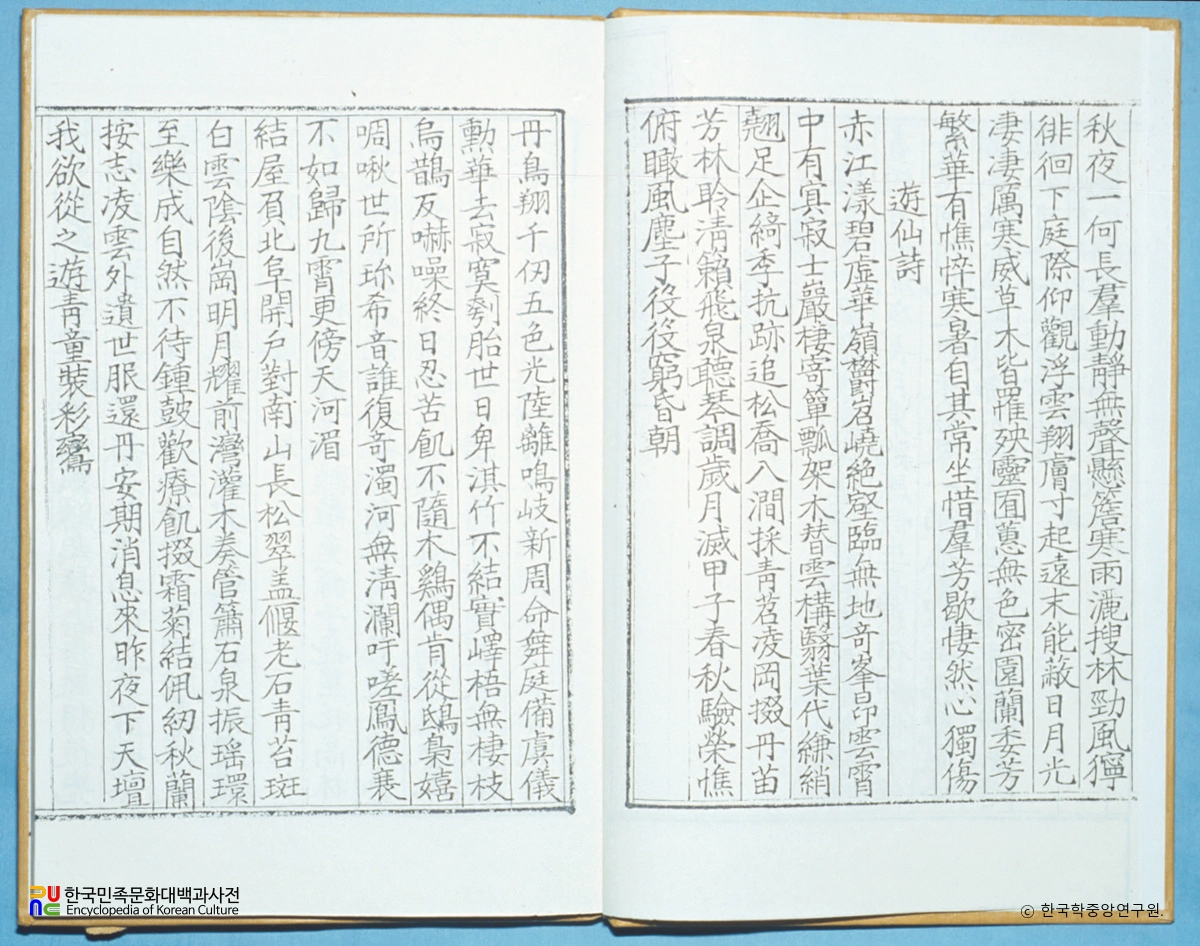 秋夜一何長羣動靜無聲懸簷寒雨灑搜林勁風獰
徘徊下庭際仰觀浮雲翔膚寸起遠末能蔽日月光
凄凄厲寒威草木皆罹殃靈囿蕙無色密園蘭委芳
繁華有憔悴寒暑自其常坐惜羣芳歇悽然心獨傷
遊仙詩
赤江漾碧虛華嶺欝岧嶢絶壑臨無地奇峯昂雲霄
中有寘寂士巖棲寄簞瓢架木替雲構翳葉代練綃
翹足企綺季抗跡追松喬入澗採青苕凌岡掇丹苗
芳林聆清籟飛泉聽琴調歲月滅甲子春秋驗榮憔
俯瞰風塵子役役窮昏朝
丹鳥翔千仞五色光陸離鳴岐新周命舞庭備虞儀
勳華去寂寞刳胎世日卑淇竹不結實嶧梧無棲枝
烏鵲反嚇噪終日忍苦飢不隨木鷄偶肯從鴟梟嬉
啁啾世所珎希音誰復奇濁河無清瀾吁嗟鳳德衰
不如歸九霄更傍天河湄
結屋負北阜開戶對南山長松翠盖偃老石青苔斑
白雲陰後崗明月耀前灣灌木奏管簫石泉振瑤環
至樂成自然不待鍾鼓歡療飢掇霜菊結佩紉秋蘭
按志凌雲外遺世服還丹安期消息來昨夜下天壇
我欲從之遊青童裝彩鸞
한국민족문화대백과사전
Encyclopedia of Korean Culture
ⓒ 한국학중앙연구원.